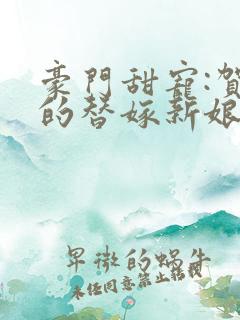 豪門甜寵:賀
的替嫁新娘
早微的蜗牛
未任同意禁止转载